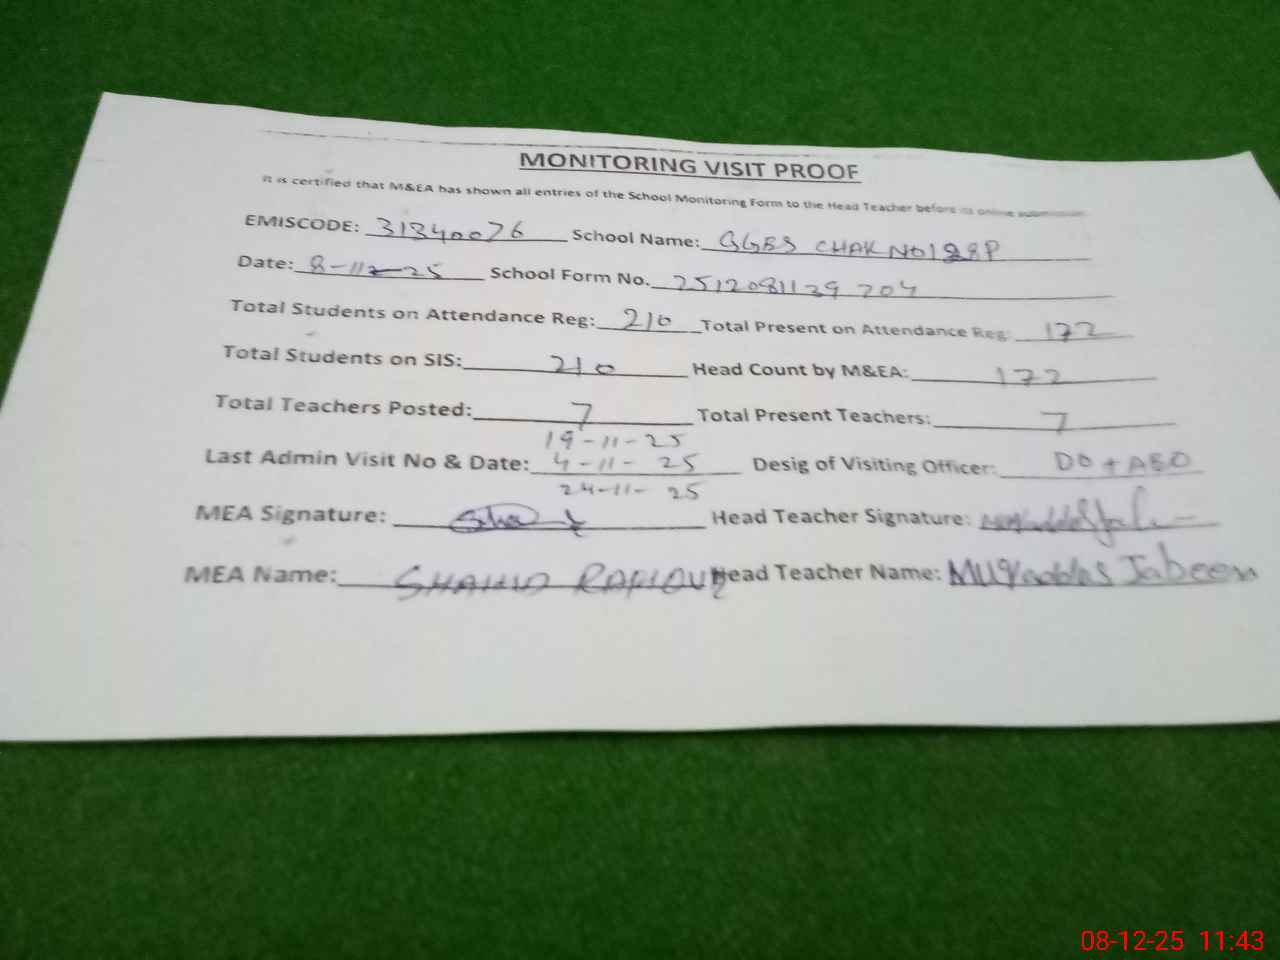 MONITORING VISIT PROOF
It is certified that M&EA has shown all entries of the School Monitoring Form to the Head Teacher before its online submission
EMISCODE: 31340076 School Name: GGES CHAK NO 128P
Date: 8-12-25 School Form No. 2512081139 704
Total Students on Attendance Reg: 210 Total Present on Attendance Reg: 172
Total Students on SIS: 210 Head Count by M&EA: 172
Total Teachers Posted: 7 Total Present Teachers: 7
19-11-25
Last Admin Visit No & Date: 4-11-25 Desig of Visiting Officer: DO + AEO
24-11-25
MEA Signature: Head Teacher Signature:
MEA Name: SHAHID RAFIQUE Head Teacher Name: Muqaddas Jabeen
08-12-25 11:43